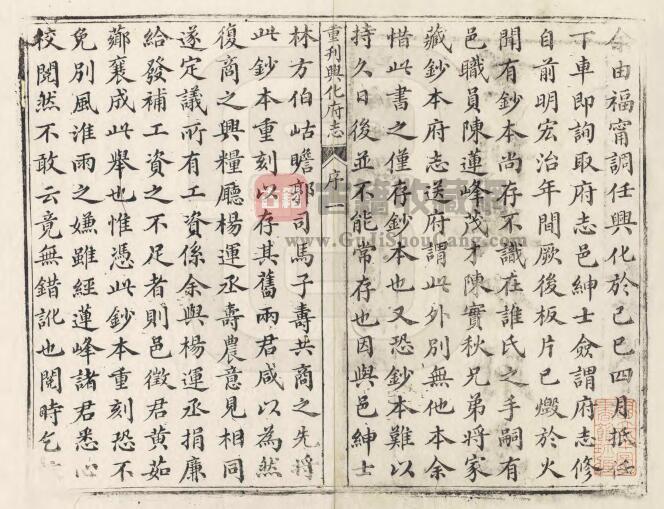 余由福甯調任興化於己巳四月抵任
下車即詢取府志邑紳士僉謂府志修
自前明宏治年間厥後板片已燬於火
聞有鈔本尚存不識在誰氏之手嗣有
邑職員陳蓮峰茂才陳實秋兄弟將家
藏鈔本府志送府謂此外別無他本余
惜此書之僅存鈔本也又恐鈔本難以
持久日後並不能常存也因與邑紳士
重刊興化府志 序 一
林方伯岵瞻郭司馬子壽共商之先將
此鈔本重刻以存其舊兩君咸以為然
復商之興糧廳楊運丞壽農意見相同
遂定議所有工資係余與楊運丞捐廉
給發補工資之不足者則邑徵君黃茹
薌襄成此舉也惟憑此鈔本重刻恐不
免別風淮雨之嫌雖經蓮峰諸君悉心
校閱然不敢云竟無錯訛也閱時乞
古籍
古籍收藏網
www.GuJiShouCang.com